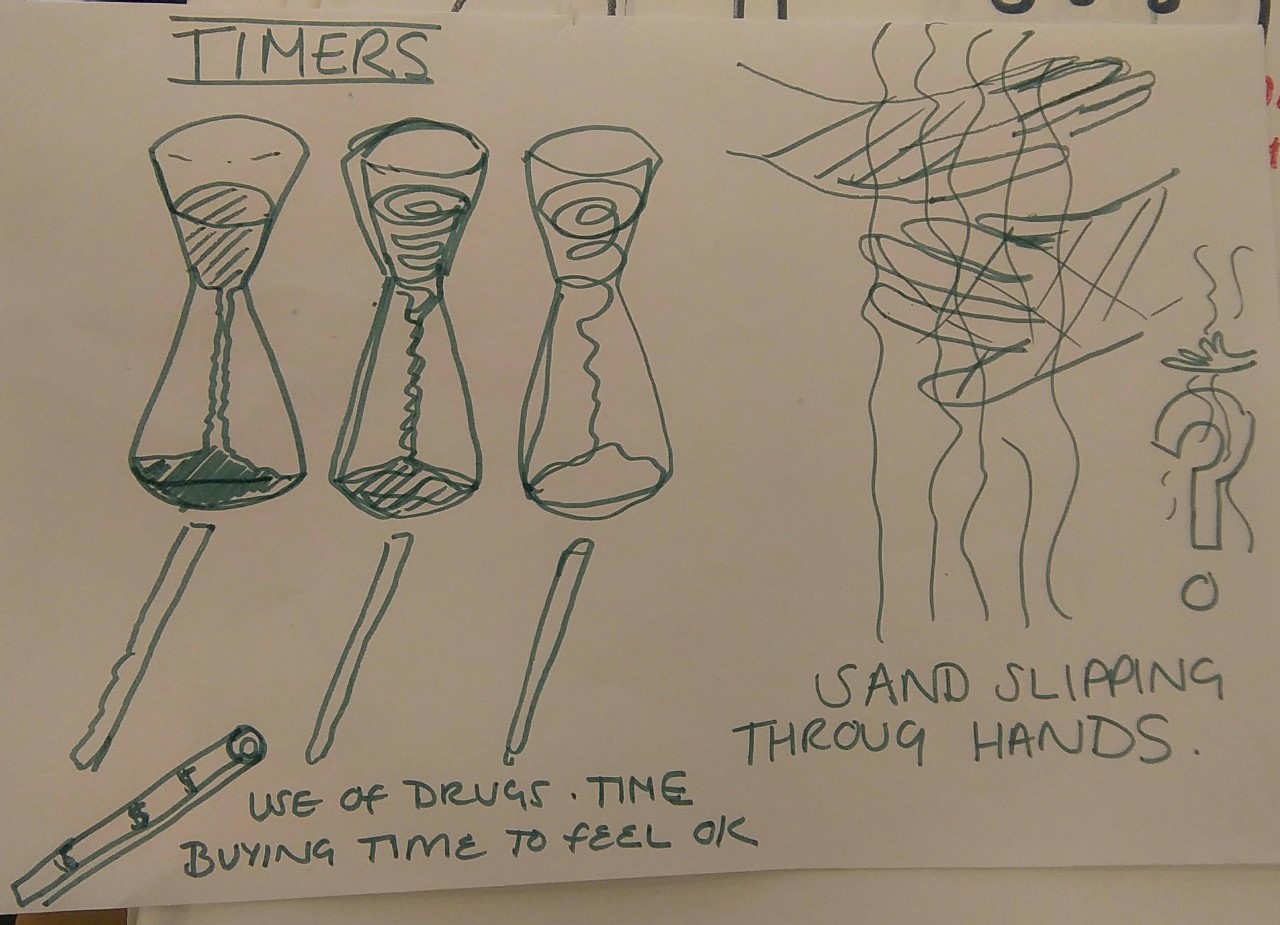 TIMERS
SAND SLIPPING
THROUG HANDS.
USE OF DRUGS. TIME
BUYING TIME TO FEEL OK
$ $ $
?